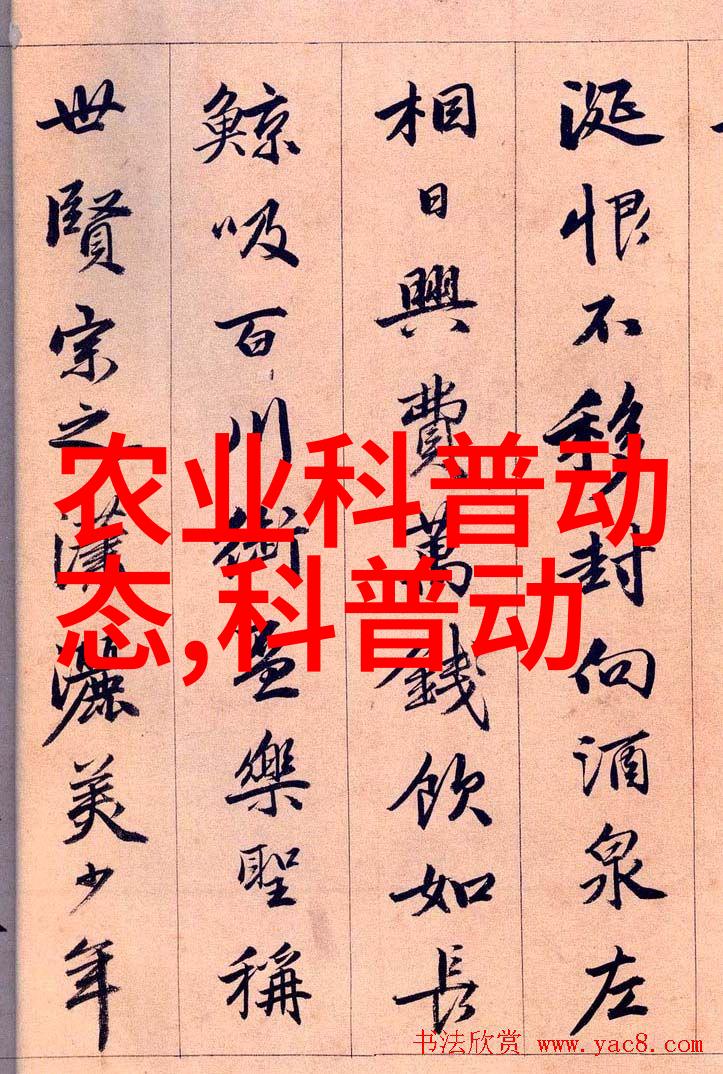 涎恨不移封向酒泉左
相日興費萬錢飲如長
鯨吸百川銜盃樂聖稱
世賢宗之瀟灑美少年
农业科普动
态,科普动
书法欣赏 www.yac8.com